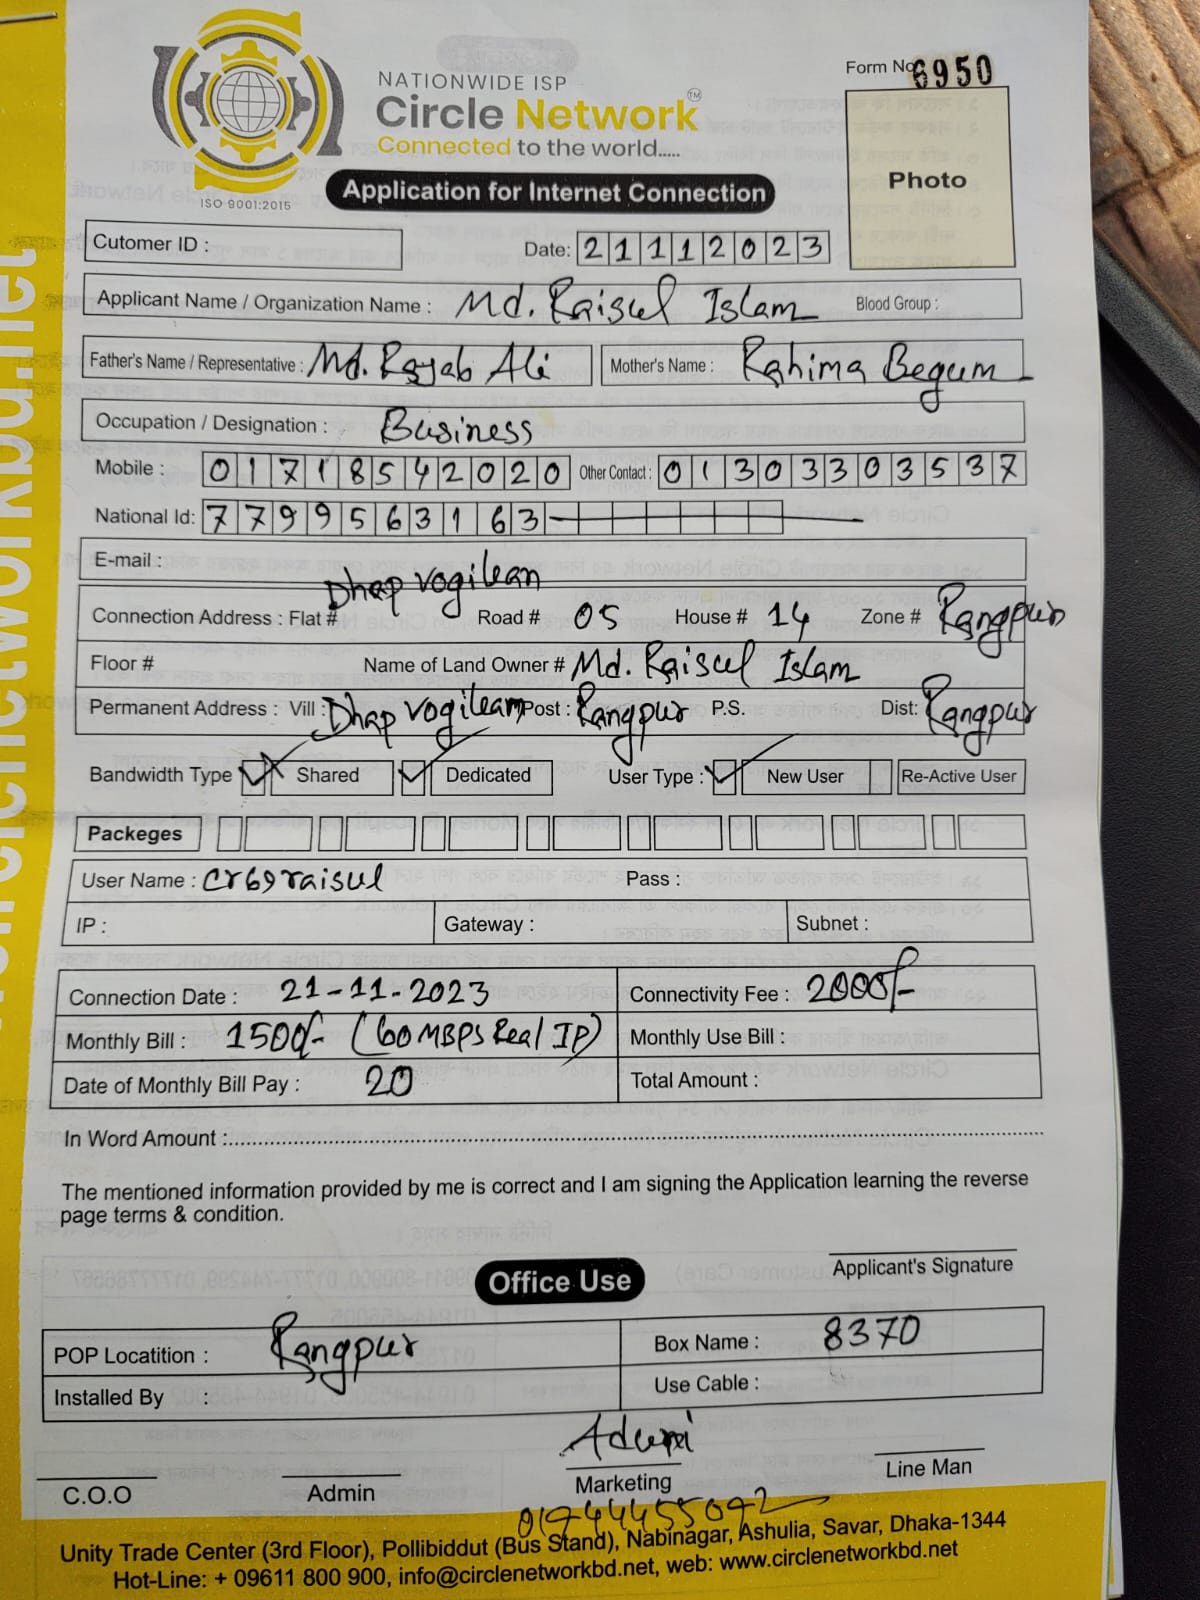 NATIONWIDE ISP
Circle Network TM
Connected to the world.....
ISO 9001:2015
Form No 6950
Photo
Application for Internet Connection
Cutomer ID :
Date: 21112023
Applicant Name / Organization Name : Md. Raisul Islam Blood Group :
Father's Name / Representative : Md. Rajab Ali Mother's Name : Rahima Begum
Occupation / Designation : Business
Mobile : 01718542020 Other Contact : 01303303537
National Id: 7799563163
E-mail :
Connection Address : Flat # Dhap Vogilean Road # 05 House # 14 Zone # Rangpur
Floor # Name of Land Owner # Md. Raisul Islam
Permanent Address : Vill : Dhap Vogilean Post : Rangpur P.S. Dist: Rangpur
Bandwidth Type Shared Dedicated User Type : New User Re-Active User
Packeges
User Name : cr69raisul Pass :
IP : Gateway : Subnet :
Connection Date : 21-11-2023 Connectivity Fee : 2000/-
Monthly Bill : 1500/- (60 MBPS Real IP) Monthly Use Bill :
Date of Monthly Bill Pay : 20 Total Amount :
In Word Amount :
The mentioned information provided by me is correct and I am signing the Application learning the reverse
page terms & condition.
Applicant's Signature
Office Use
POP Locatition : Rangpur Box Name : 8370
Installed By : Use Cable :
C.O.O Admin Marketing Line Man
01944455092
Unity Trade Center (3rd Floor), Pollibiddut (Bus Stand), Nabinagar, Ashulia, Savar, Dhaka-1344
Hot-Line: + 09611 800 900, info@circlenetworkbd.net, web: www.circlenetworkbd.net